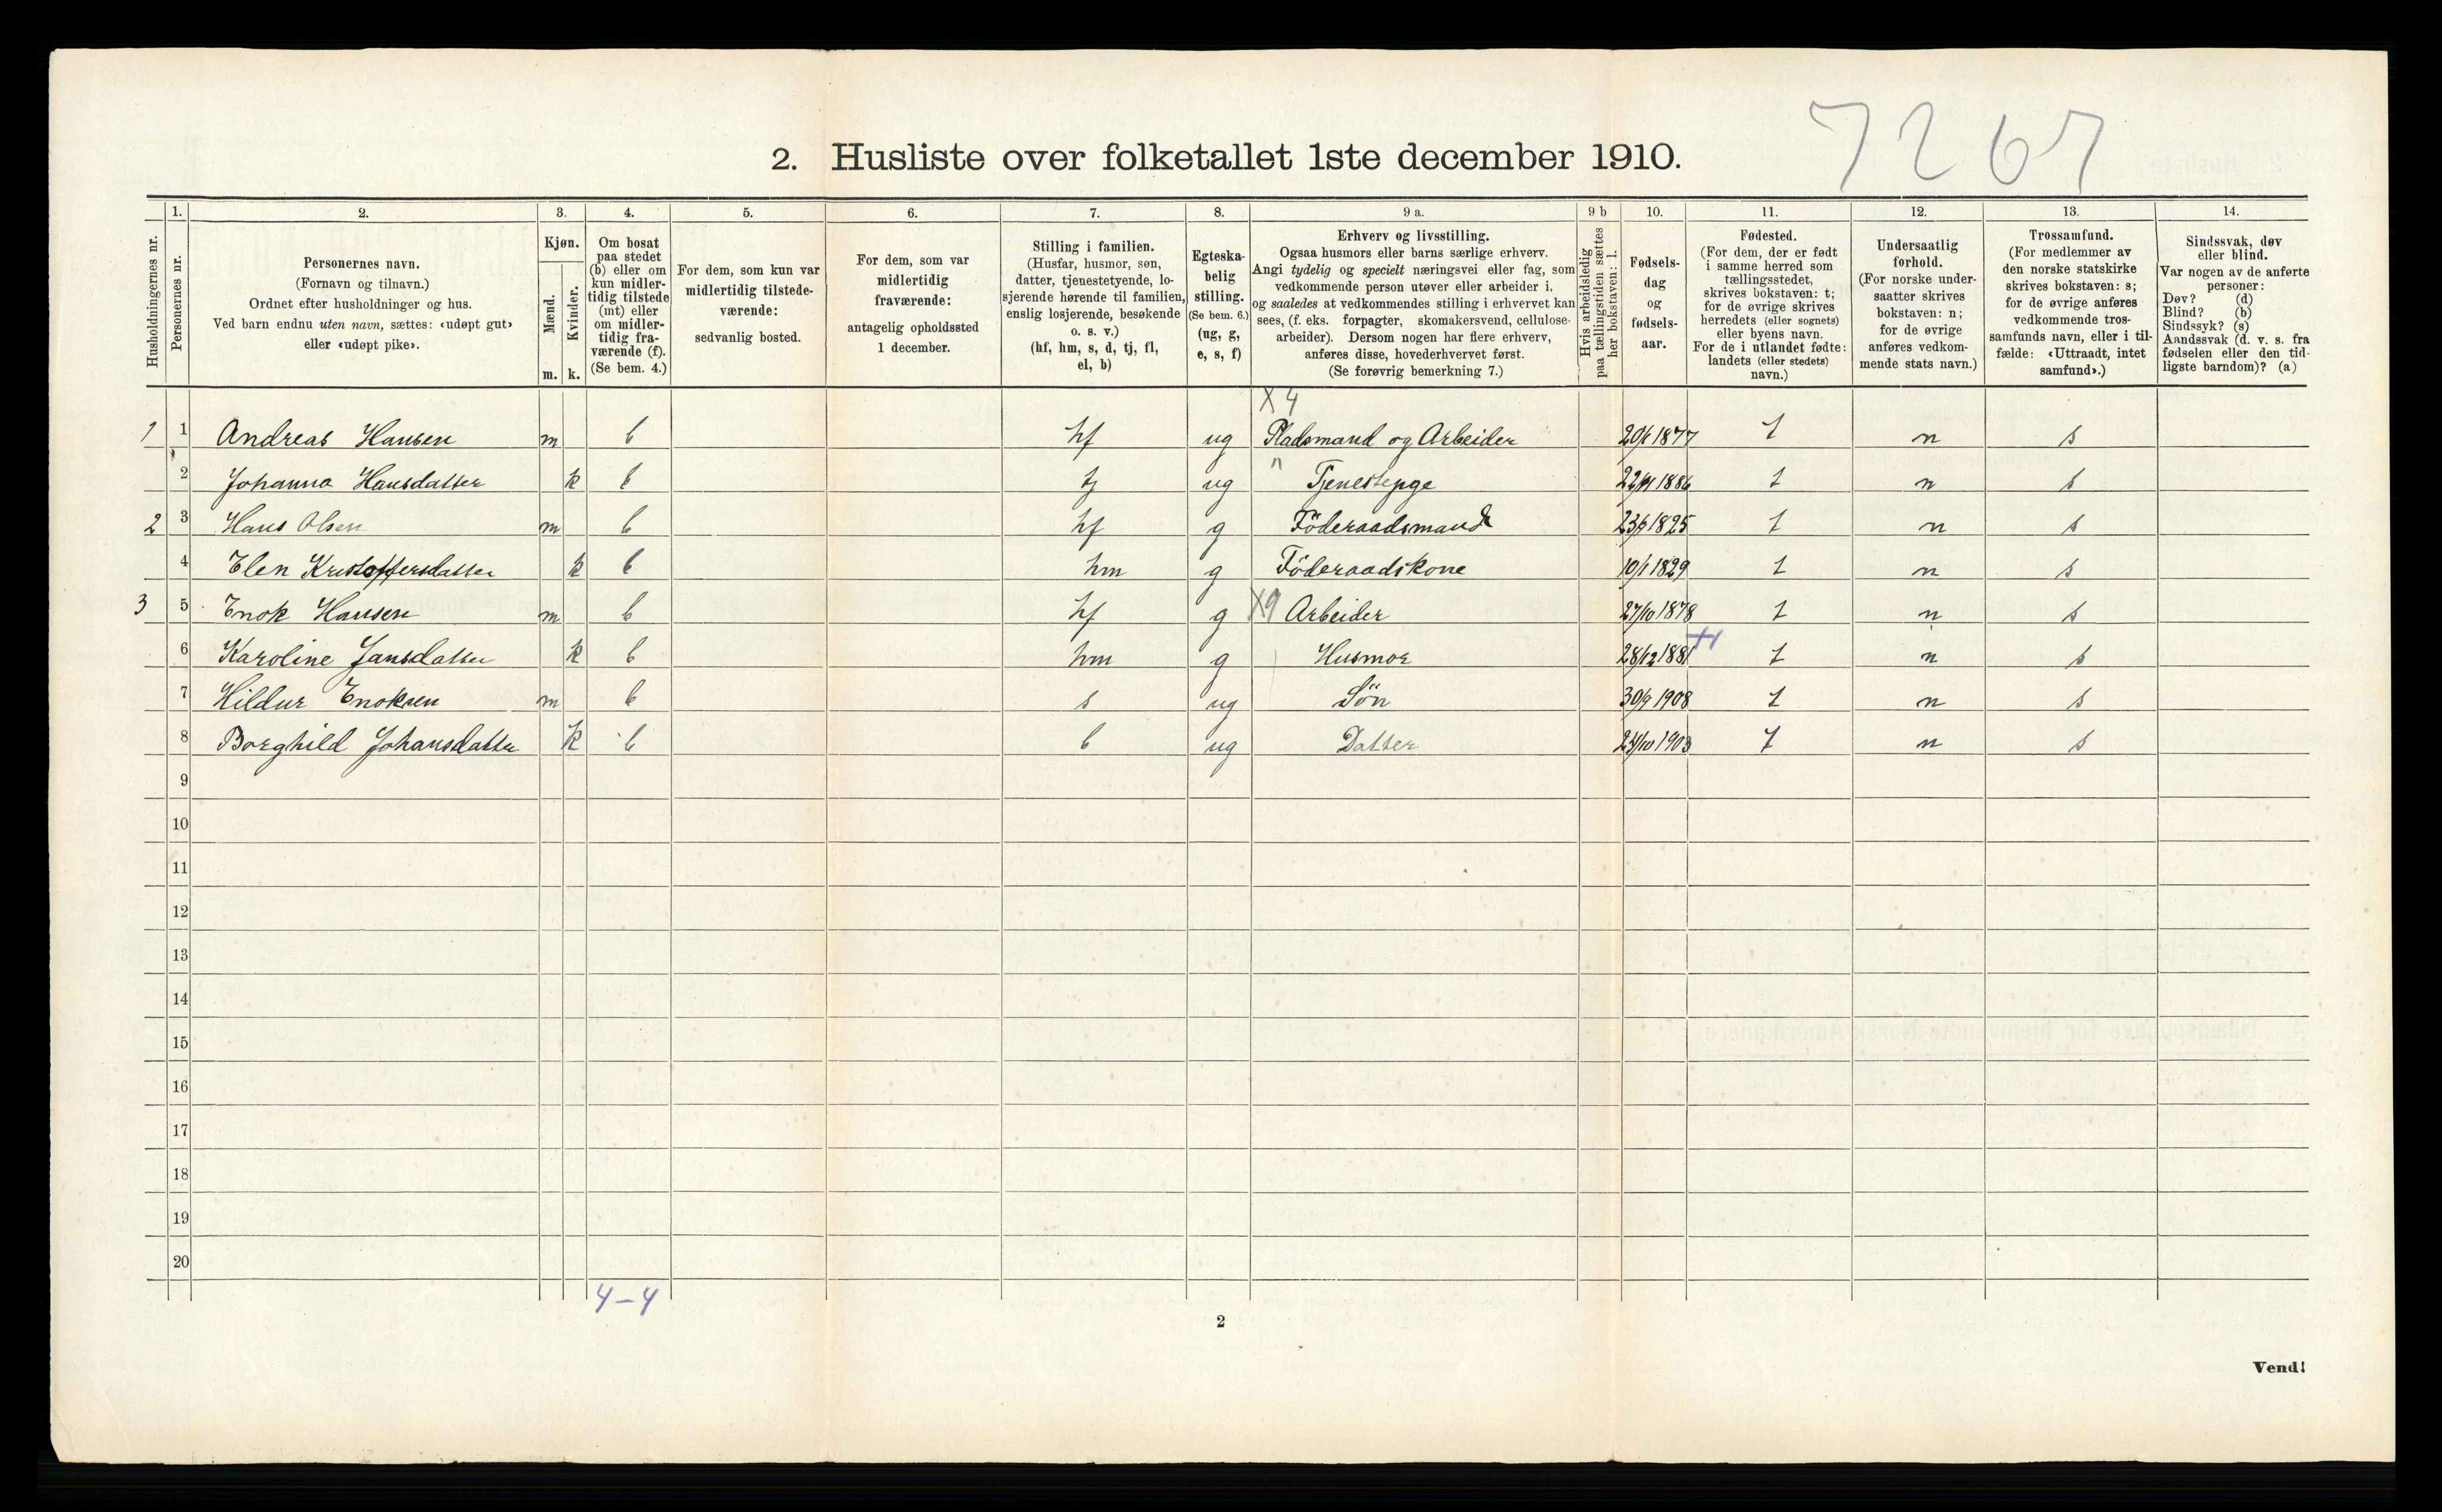 7267
2. Husliste over folketallet 1ste december 1910.
Husholdningernes nr.
1.
Personernes nr.
2.
Personernes navn.
(Fornavn og tilnavn.)
Ordnet efter husholdninger og hus.
Ved barn endnu uten navn, sættes: «udøpt gut»
eller «udøpt pike».
3.
Kjøn.
Mænd.
Kvinder.
m. k.
4.
Om bosat
paa stedet
(b) eller om
kun midler-
tidig tilstede
(mt) eller
om midler-
tidig fra-
værende (f).
(Se bem. 4.)
5.
For dem, som kun var
midlertidig tilstede-
værende:
sedvanlig bosted.
6.
For dem, som var
midlertidig
fraværende:
antagelig opholdssted
1 december.
7.
Stilling i familien.
(Husfar, husmor, søn,
datter, tjenestetyende, lo-
sjerende hørende til familien,
enslig losjerende, besøkende
o. s. v.)
(hf, hm, s, d, tj, fl,
el, b)
8.
Egteska-
belig
stilling.
(Se bem. 6.)
(ug, g,
e, s, f)
9 a.
Erhverv og livsstilling.
Ogsaa husmors eller barns særlige erhverv.
Angi tydelig og specielt næringsvei eller fag, som
vedkommende person utøver eller arbeider i,
og saaledes at vedkommendes stilling i erhvervet kan
sees, (f. eks. forpagter, skomakersvend, cellulose-
arbeider). Dersom nogen har flere erhverv,
anføres disse, hovederhvervet først.
(Se forøvrig bemerkning 7.)
9 b
Hvis arbeidsledig
paa tællingstiden sættes
her bokstaven: l.
10.
Fødsels-
dag
og
fødsels-
aar.
11.
Fødested.
(For dem, der er født
i samme herred som
tællingsstedet,
skrives bokstaven: t;
for de øvrige skrives
herredets (eller sognets)
eller byens navn.
For de i utlandet fødte:
landets (eller stedets)
navn.)
12.
Undersaatlig
forhold.
(For norske under-
saatter skrives
bokstaven: n;
for de øvrige
anføres vedkom-
mende stats navn.)
13.
Trossamfund.
(For medlemmer av
den norske statskirke
skrives bokstaven: s;
for de øvrige anføres
vedkommende tros-
samfunds navn, eller i til-
fælde: «Uttraadt, intet
samfund».)
14.
Sindssvak, døv
eller blind.
Var nogen av de anførte
personer:
Døv? (d)
Blind? (b)
Sindssyk? (s)
Aandssvak (d. v. s. fra
fødselen eller den tid-
ligste barndom)? (a)
X 4
1 1 Andreas Hansen m b hf ug Pladsmand og Arbeider 1877 t n s
2 Johanna Hansdatter k b tj ug " Tjenestepge 1886 t n s
2 3 Hans Olsen m b hf g Föderaadsmand 1825 t n s
4 Elen Kristoffersdatter k b hm g Föderaadskone 10/1 1829 t n s
3 5 Enok Hansen m b hf g X9 Arbeider 27/10 1878 t n s
6 Karoline Jansdatter k b hm g Husmor 28/12 1881 t n s
7 Hildur Enoksen m b s ug Sön 30/9 1908 t n s
8 Borghild Johansdatter k b b ug Datter 1903 t n s
9
10
11
12
13
14
15
16
17
18
19
20
4-4
2
Vend!